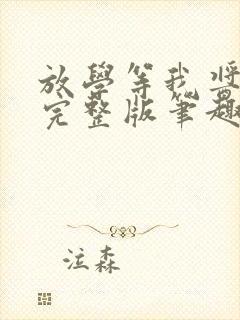 放學等我 將
完整版筆趣
泣森